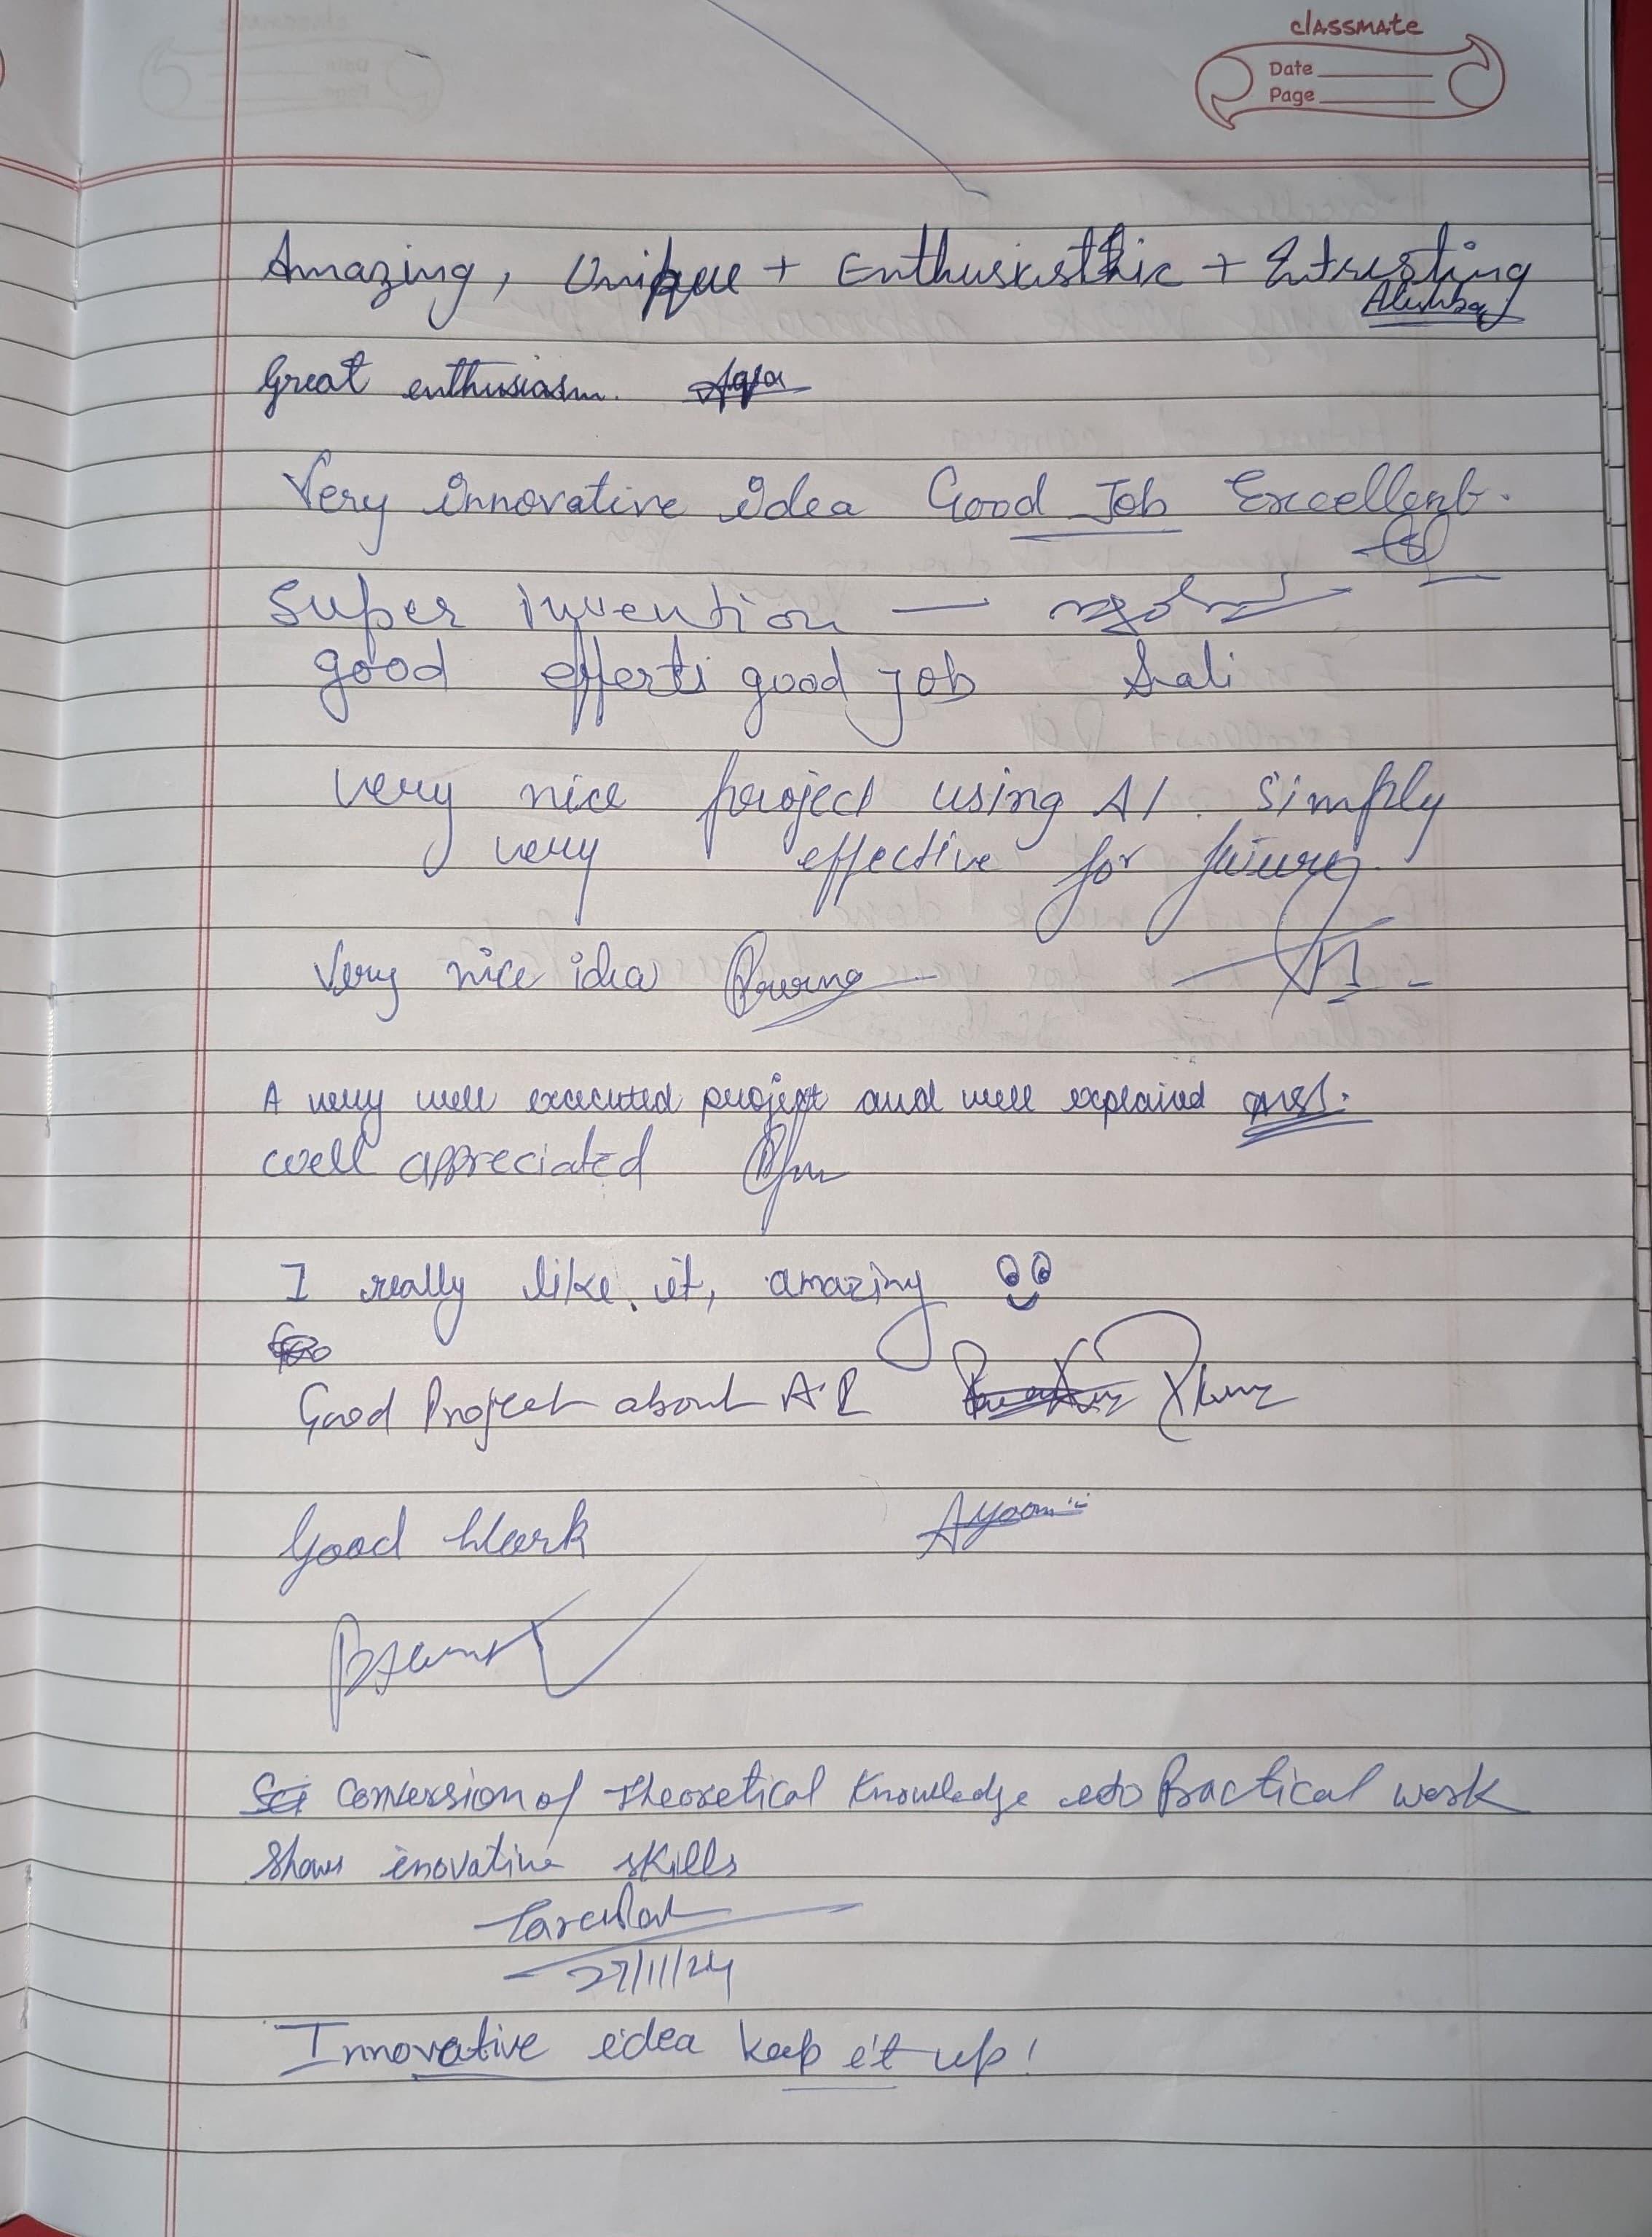 classmate
Date
Page
Amazing, Unique + Enthusiasthic + Intresting
Great enthusiasm.
Very innovative idea Good Job Excellent.
Super Invention —
good efferti good job Sali
very nice project using AI. Simply
very effective for future
Very nice idea
A very well executed project and well explained
well appreciated
I really like it, amazing
Good Project about A.I
Good Work
Conversion of theoretical Knowledge into Practical work
Shows inovative skills
27/11/24
Innovative idea keep it up!